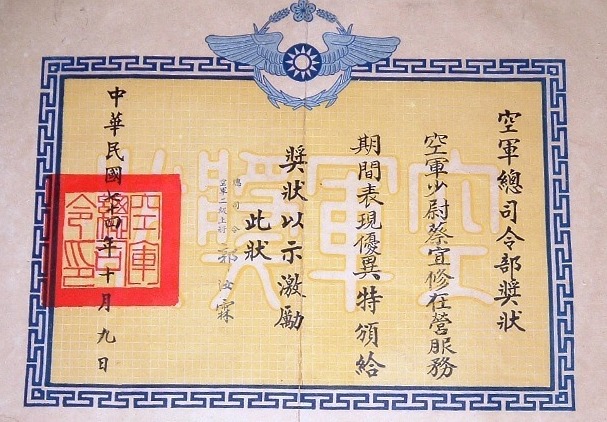 空軍總司令部獎狀
空軍少尉蔡宜修在營服務
期間表現優異特頒給
獎狀以示激勵
此狀
總司令
空軍二級上將
郭汝霖
中華民國七十四年十月九日
空軍獎狀
空軍總司令印